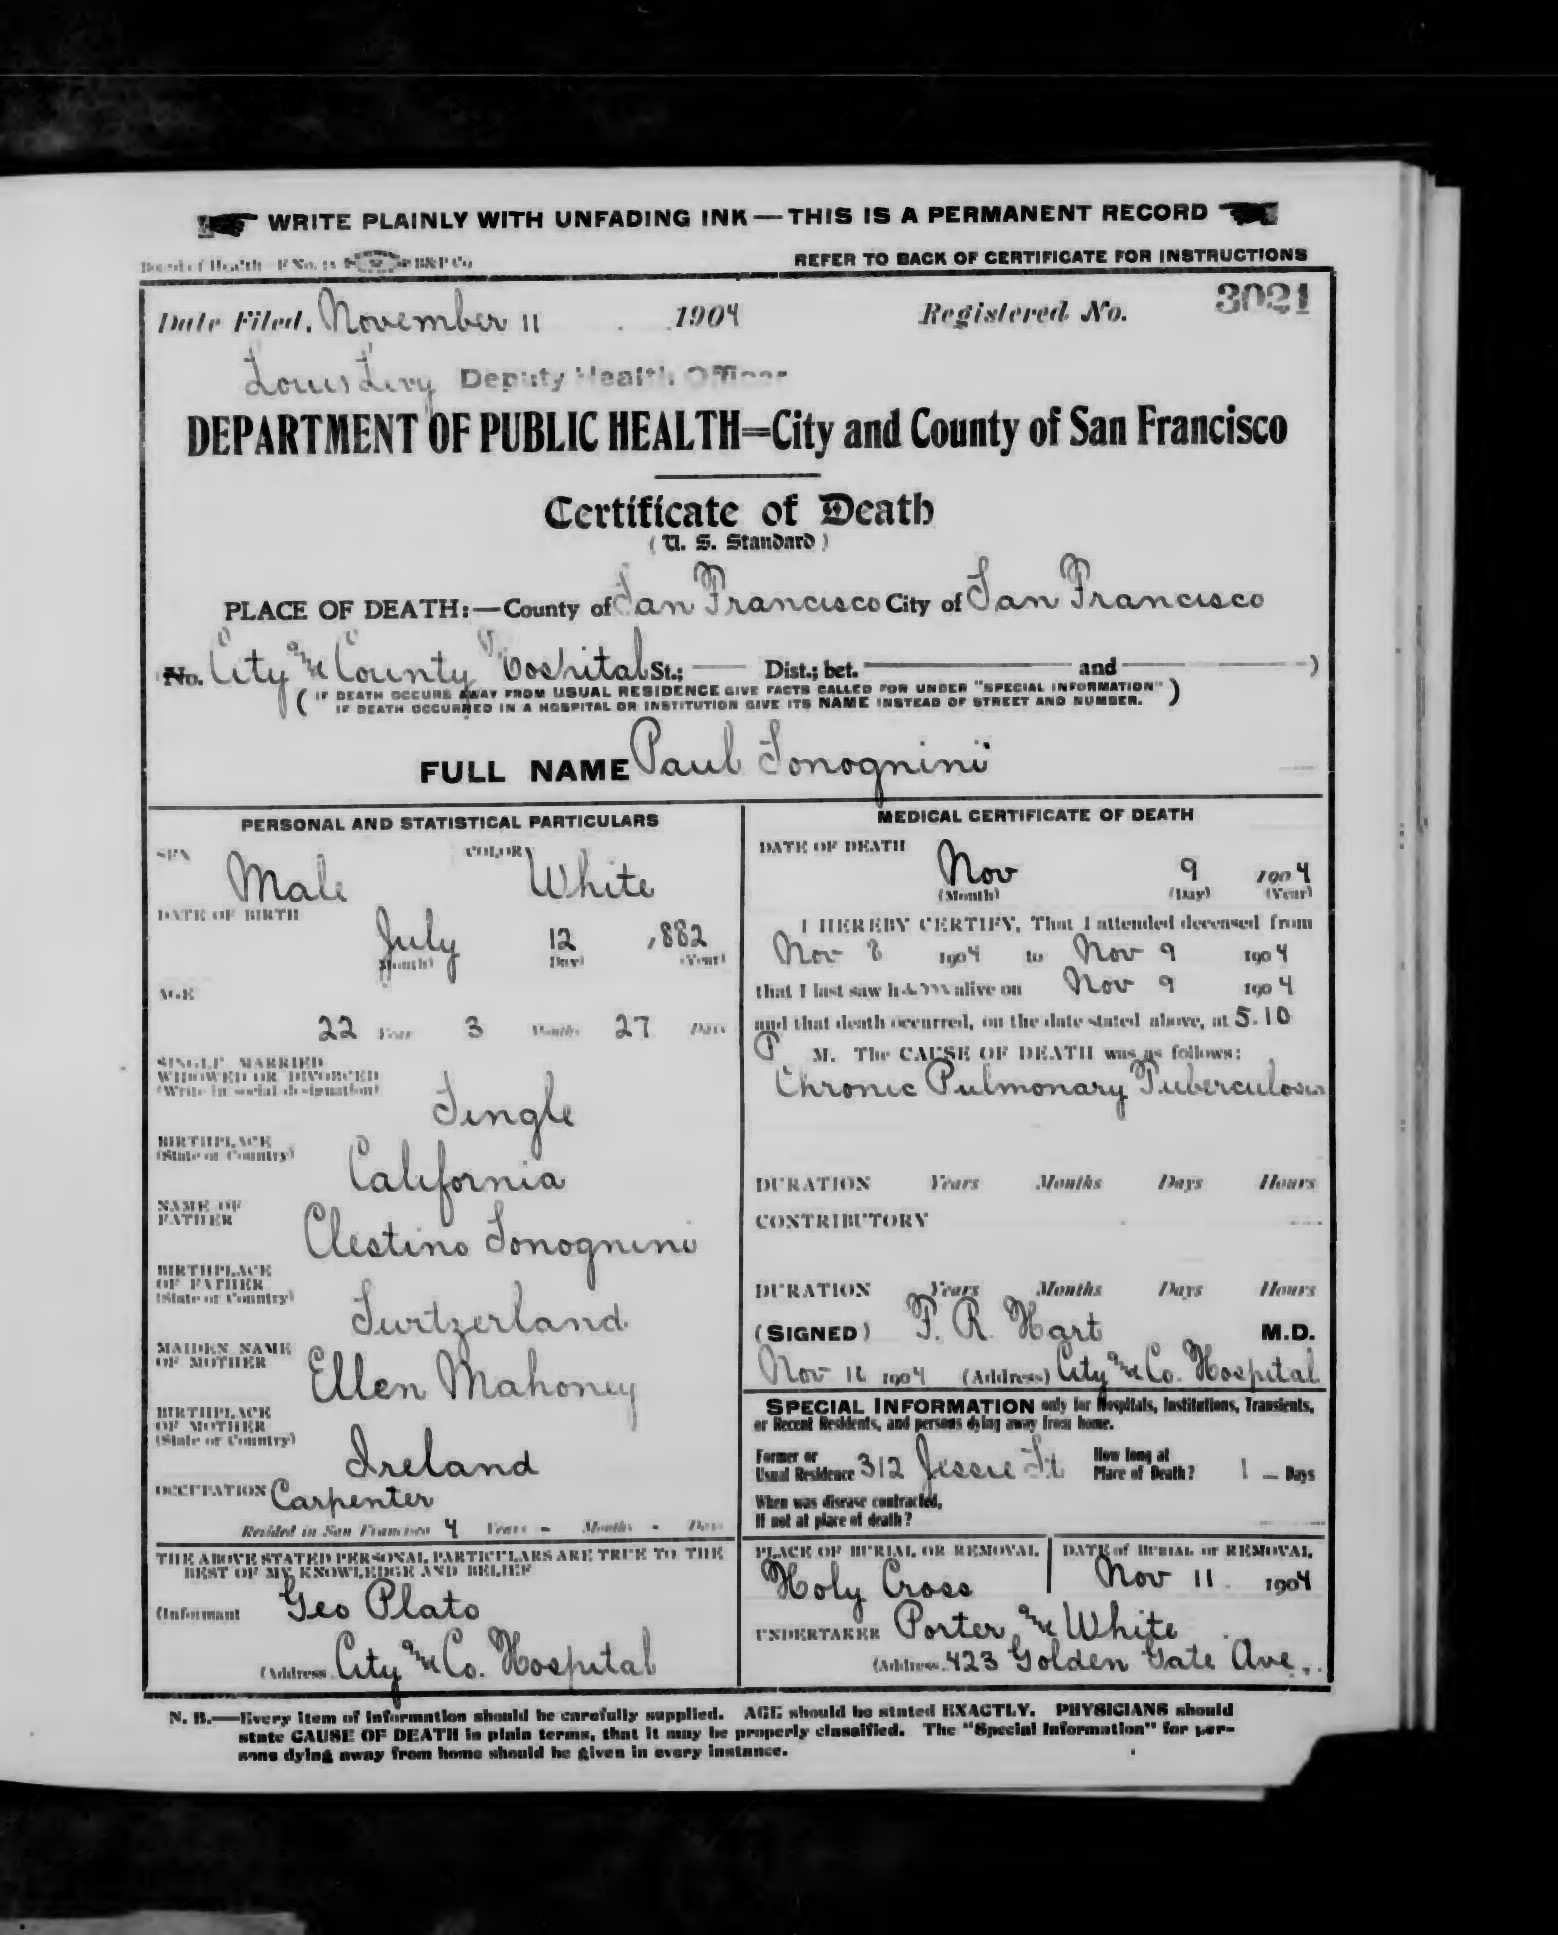 WRITE PLAINLY WITH UNFADING INK—THIS IS A PERMANENT RECORD
Board of Health—F No. B&P Co
REFER TO BACK OF CERTIFICATE FOR INSTRUCTIONS
Date Filed, November 11 1904 Registered No. 3021
Louis Levy Deputy Health Officer
DEPARTMENT OF PUBLIC HEALTH=City and County of San Francisco
Certificate of Death
(U. S. Standard)
PLACE OF DEATH:—County of San Francisco City of San Francisco
No. City and County Hospital St.; Dist.; bet. and )
( IF DEATH OCCURS AWAY FROM USUAL RESIDENCE GIVE FACTS CALLED FOR UNDER "SPECIAL INFORMATION" )
IF DEATH OCCURRED IN A HOSPITAL OR INSTITUTION GIVE ITS NAME INSTEAD OF STREET AND NUMBER.
FULL NAME Paul Tonognini
PERSONAL AND STATISTICAL PARTICULARS
SEX Male COLOR White
DATE OF BIRTH
July 12 1882
(Month) (Day) (Year)
AGE
22 Years 3 Months 27 Days
SINGLE, MARRIED
WIDOWED OR DIVORCED
(Write in social designation)
Single
BIRTHPLACE
(State or Country)
California
NAME OF
FATHER
Clestino Tonognini
BIRTHPLACE
OF FATHER
(State or Country)
Switzerland
MAIDEN NAME
OF MOTHER
Ellen Mahoney
BIRTHPLACE
OF MOTHER
(State or Country)
Ireland
OCCUPATION Carpenter
Resided in San Francisco 4 Years - Months - Days
THE ABOVE STATED PERSONAL PARTICULARS ARE TRUE TO THE
BEST OF MY KNOWLEDGE AND BELIEF
(Informant Geo Plato
(Address City and Co. Hospital
MEDICAL CERTIFICATE OF DEATH
DATE OF DEATH
Nov 9 1904
(Month) (Day) (Year)
I HEREBY CERTIFY, That I attended deceased from
Nov 8 1904 to Nov 9 1904
that I last saw him alive on Nov 9 1904
and that death occurred, on the date stated above, at 5.10
P M. The CAUSE OF DEATH was as follows:
Chronic Pulmonary Tuberculosis
DURATION Years Months Days Hours
CONTRIBUTORY
DURATION Years Months Days Hours
(SIGNED) F. R. Hart M.D.
Nov 11 1904 (Address) City and Co. Hospital
SPECIAL INFORMATION only for Hospitals, Institutions, Transients,
or Recent Residents, and persons dying away from home.
Former or
Usual Residence 312 Jessie St
How long at
Place of Death? 1 — Days
When was disease contracted,
If not at place of death?
PLACE OF BURIAL OR REMOVAL
Holy Cross
DATE of BURIAL or REMOVAL
Nov 11 1904
UNDERTAKER Porter and White
(Address 423 Golden Gate Ave.
N. B.—Every item of information should be carefully supplied. AGE should be stated EXACTLY. PHYSICIANS should
state CAUSE OF DEATH in plain terms, that it may be properly classified. The "Special Information" for per-
sons dying away from home should be given in every instance.